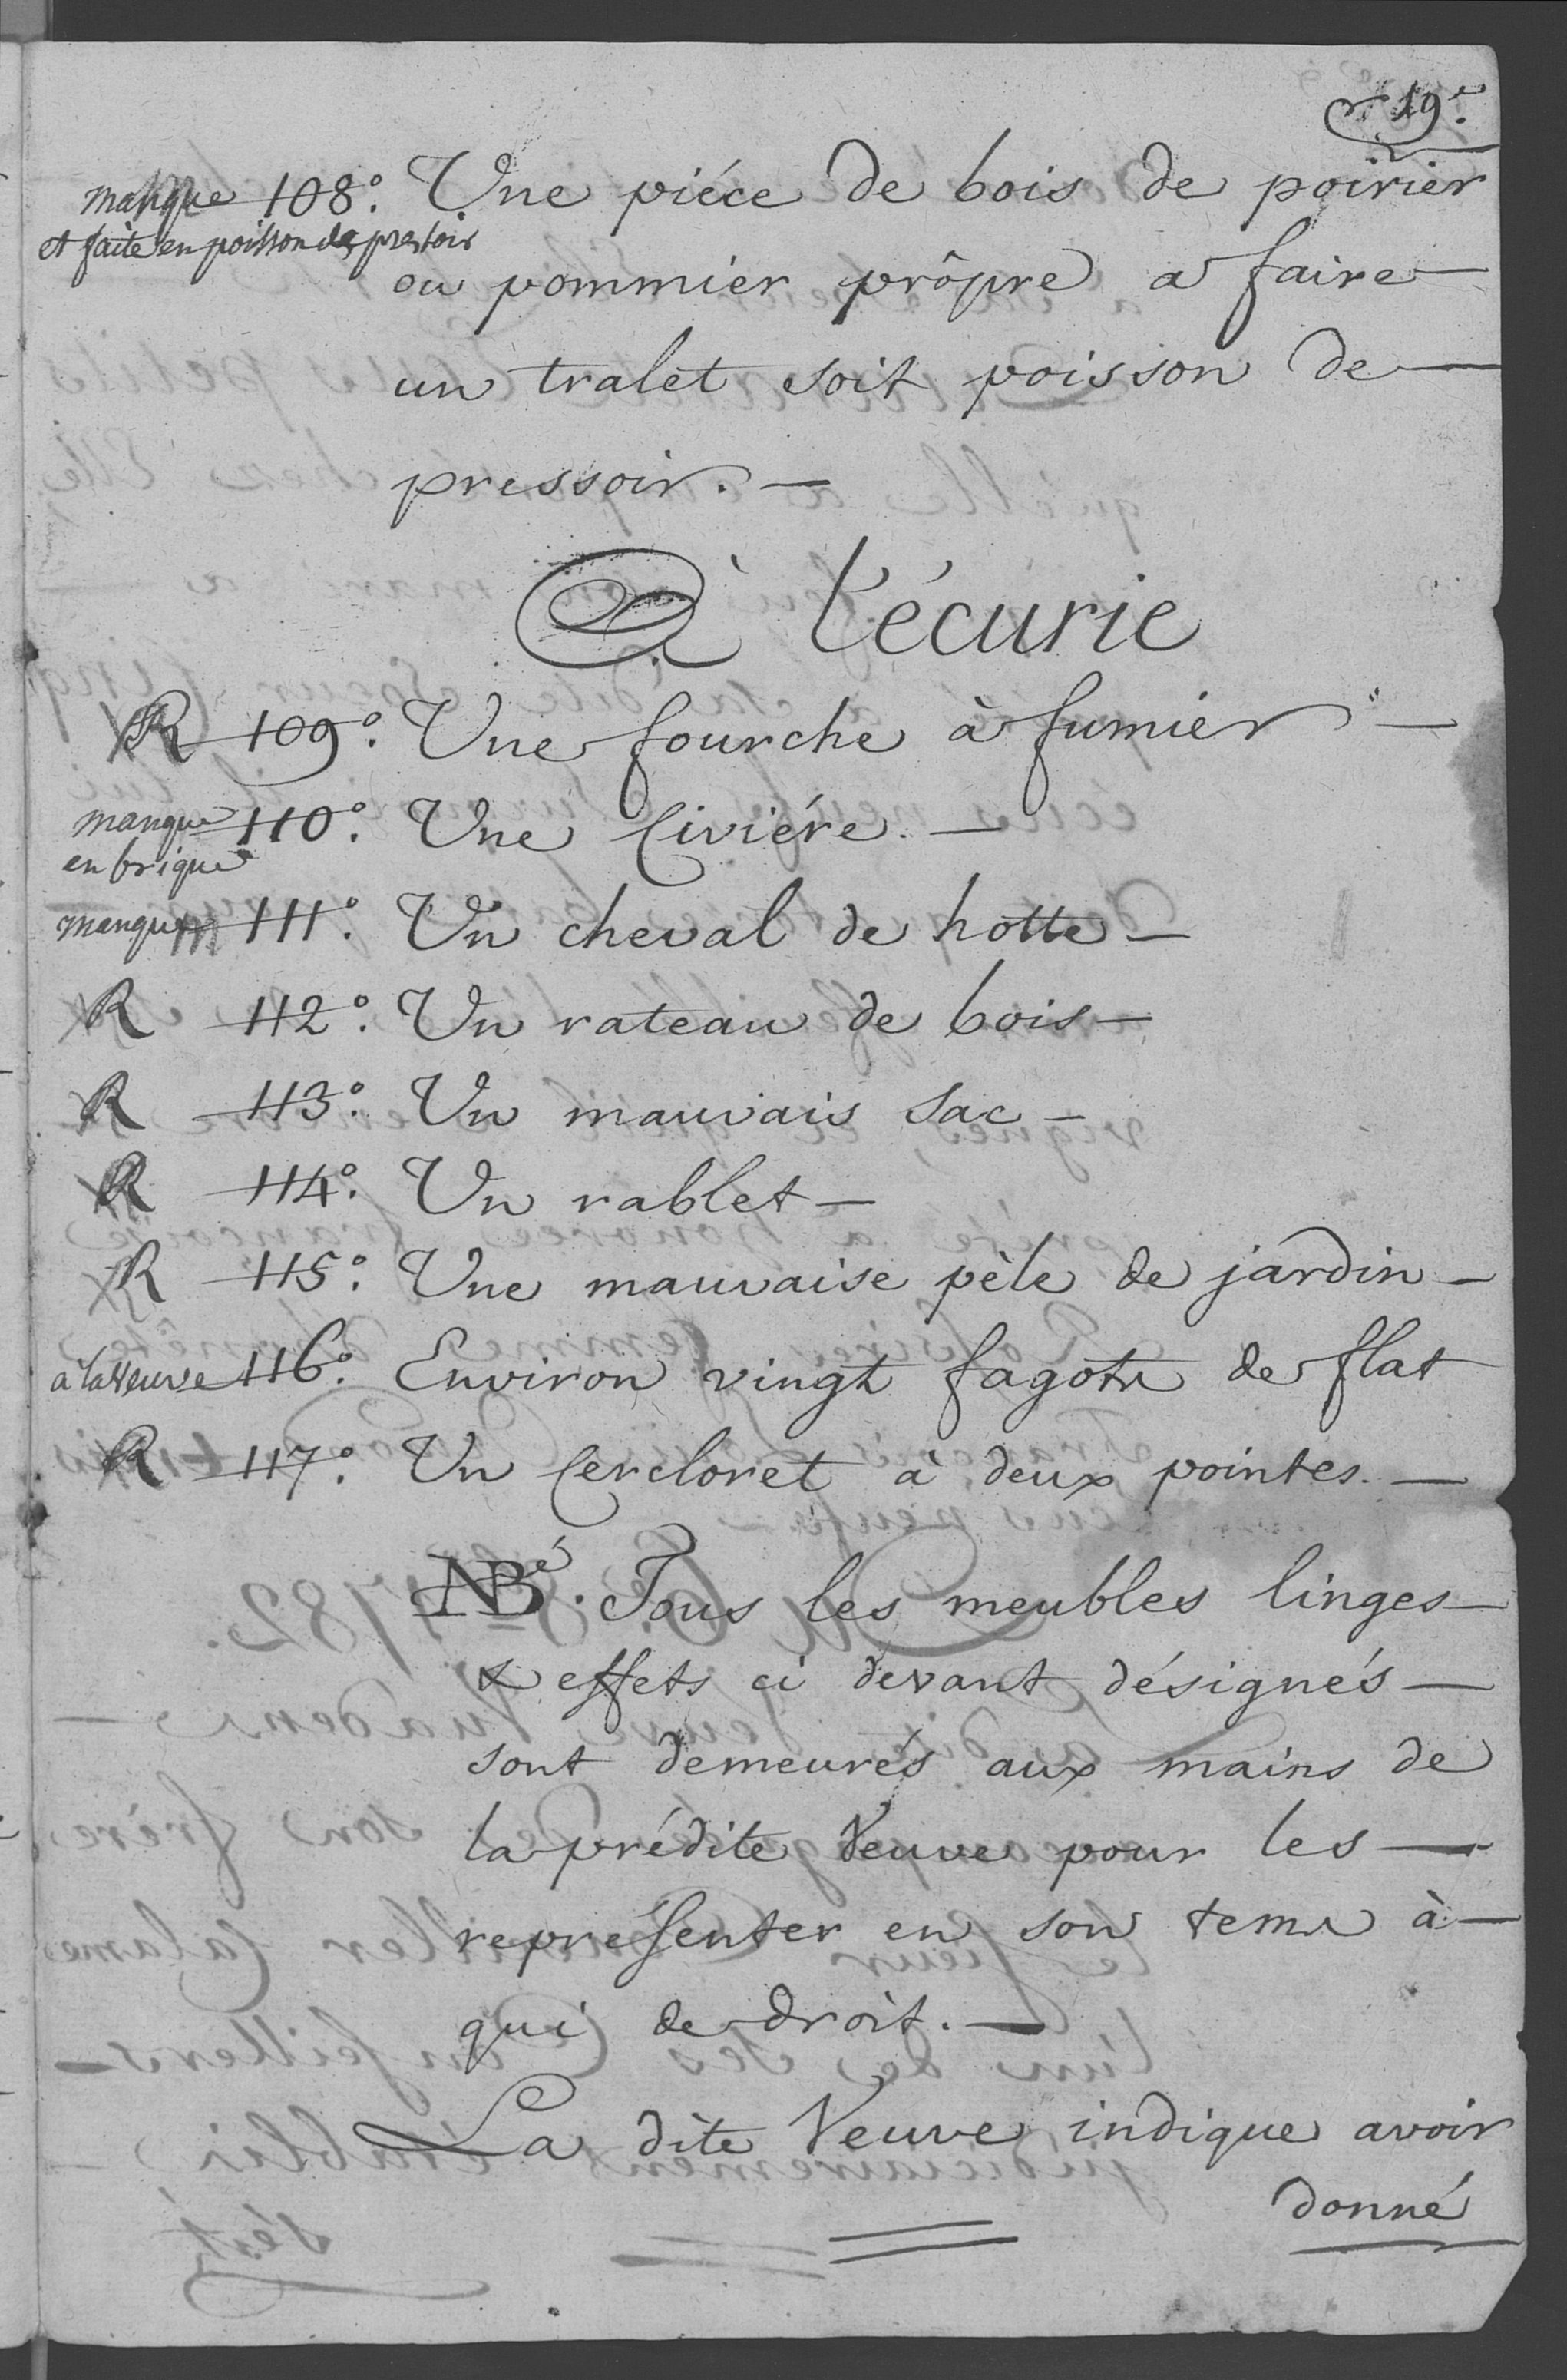 19.e
manque 108.° Une piéce de bois de poirier
et faite en poisson de presoir
ou pommier prôpre a faire —
un tralet soit poisson de —
pressoir. —
À l'écurie
R 109.° Une fourche à fumier —
manque 110.° Une Civiére. —
en brique
manque 111.° Un cheval de hotte —
R 112.° Un rateau de bois —
R 113.° Un mauvais sac —
R 114.° Un rablet —
R 115.° Une mauvaise pèle de jardin —
a la veuve 116.° Environ vingt fagots de flat
R 117.° Un Cercloret à deux pointes. —
NBé. Tous les meubles linges —
& effets ci devant désignés —
sont demeurés aux mains de
la prédite Veuve pour les —
représenter en son tems à —
qui de droit. —
La dite Veuve indique avoir
donné